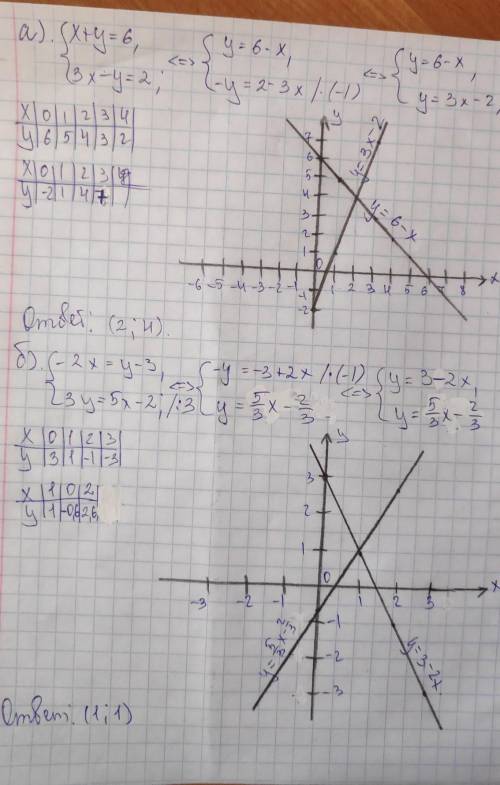 а). { x+y=6, 3x-y=2; <=> { y=6-x, -y=2-3x /·(-1) <=> { y=6-x, y=3x-2,
x 0 1 2 3 4
y 6 5 4 3 2
x 0 1 2 3
y -2 1 4 7
y
7 6 5 4 3 2 1 0 -1 -2
y=3x-2
y=6-x
-6 -5 -4 -3 -2 -1 1 2 3 4 5 6 7 8 x
Ответ: (2; 4).
б). { -2x=y-3, 3y=5x-2, /:3 <=> { -y=-3+2x /·(-1) y=5/3x-2/3. <=> { y=3-2x, y=5/3x-2/3
x 0 1 2 3
y 3 1 -1 -3
x 1 0 2
y 1 -0,6 2,6
y
3 2 1 0 -1 -2 -3
-3 -2 -1 1 2 3 x
y=5/3x-2/3
y=3-2x.
Ответ: (1; 1)